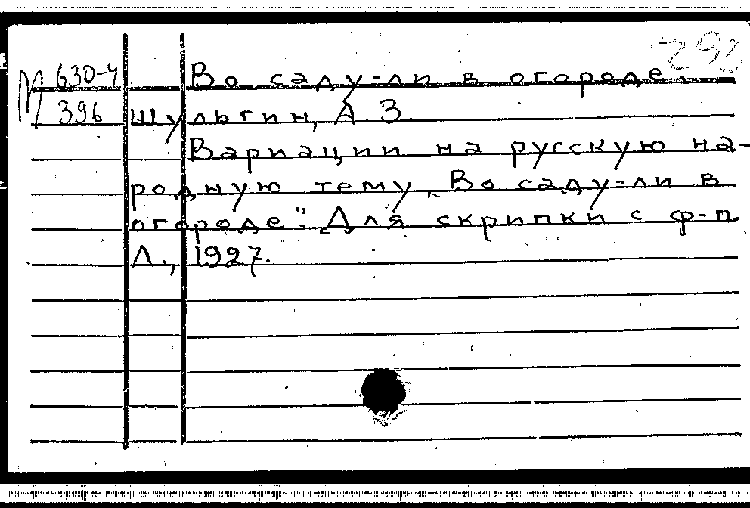 М 630-4 Во саду-ли в огороде.
396 Шульгин, А З
Вариации на русскую на-
родную тему „Во саду-ли в
огороде". Для скрипки с ф-п
Л., 1927.